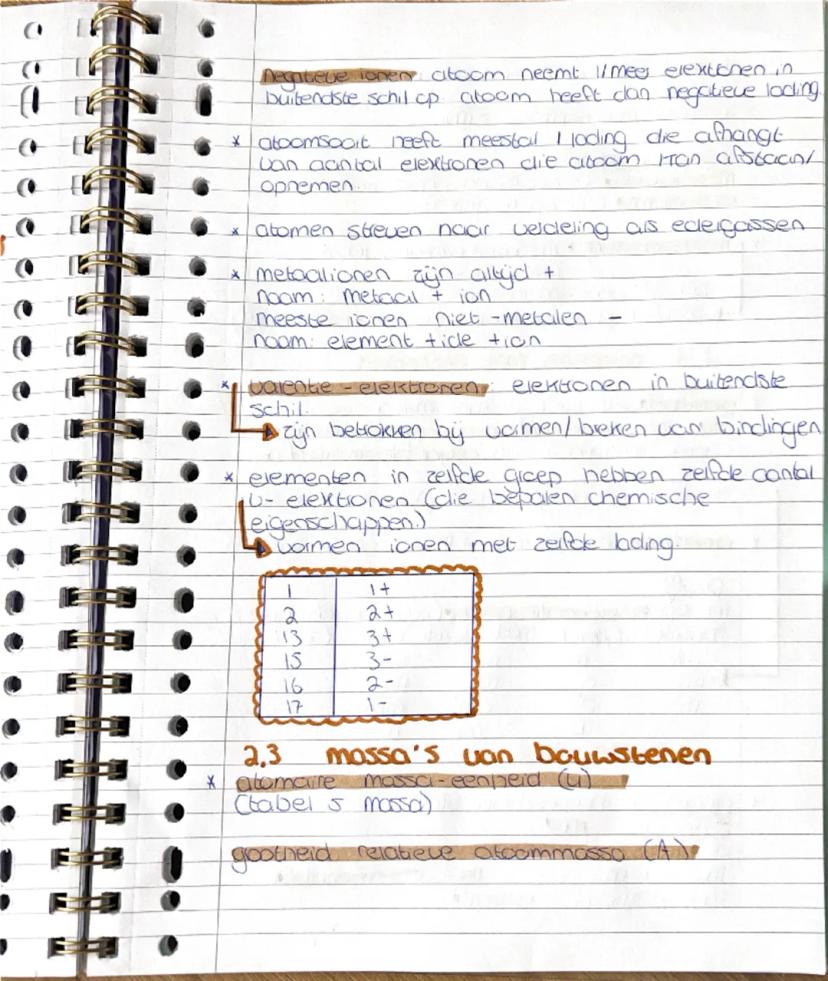 negatieve ionen: atoom neemt 1/meer elektronen in
buitendste schil op. atoom heeft dan negatieve lading.
* atoomsoort heeft meestal 1 lading die afhangt
van aantal elektronen die atoom kan afstaan/
opnemen.
* atomen streven naar verdeling als edelgassen
* metaalionen zijn altijd +
naam: metaal + ion
meeste ionen niet-metalen -
naam: element + ide + ion
* valentie-elektronen: elektronen in buitendste
schil.
zijn betrokken bij vormen/breken van bindingen
* elementen in zelfde groep hebben zelfde aantal
v-elektronen (die bepalen chemische
eigenschappen.)
vormen ionen met zelfde lading.
1 1+
2 2+
13 3+
15 3-
16 2-
17 1-
2.3 massa's van bouwstenen
* atomaire massa-eenheid (u)
(tabel 5 massa)
grootheid relatieve atoommassa (A)